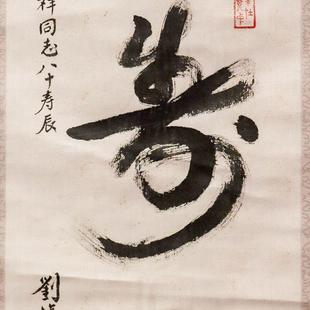 寿
祥同志八十寿辰
劉